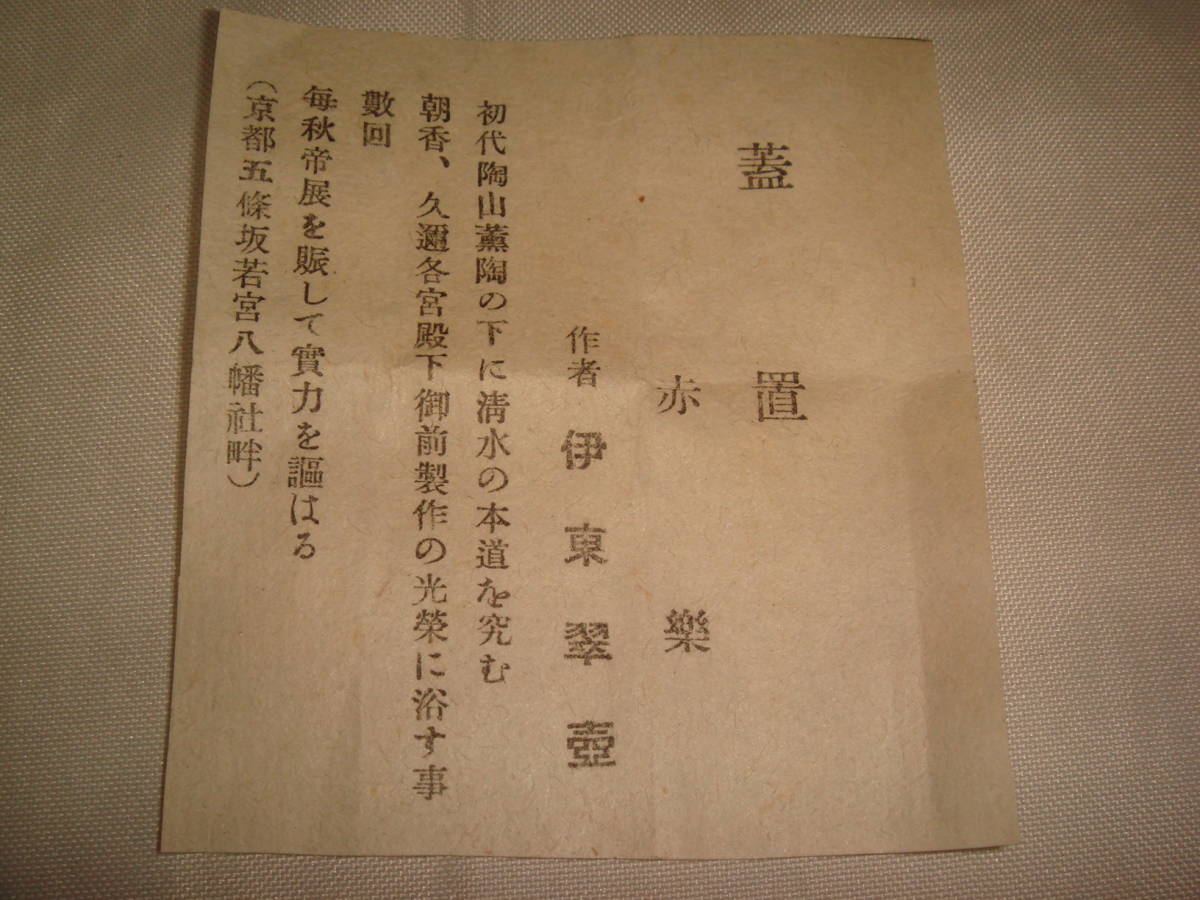 蓋置
赤樂
作者 伊東翠壺
初代陶山薰陶の下に淸水の本道を究む
朝香、久邇各宮殿下御前製作の光榮に浴す事
數回
每秋帝展を賑して實力を謳はる
（京都五條坂若宮八幡社畔）